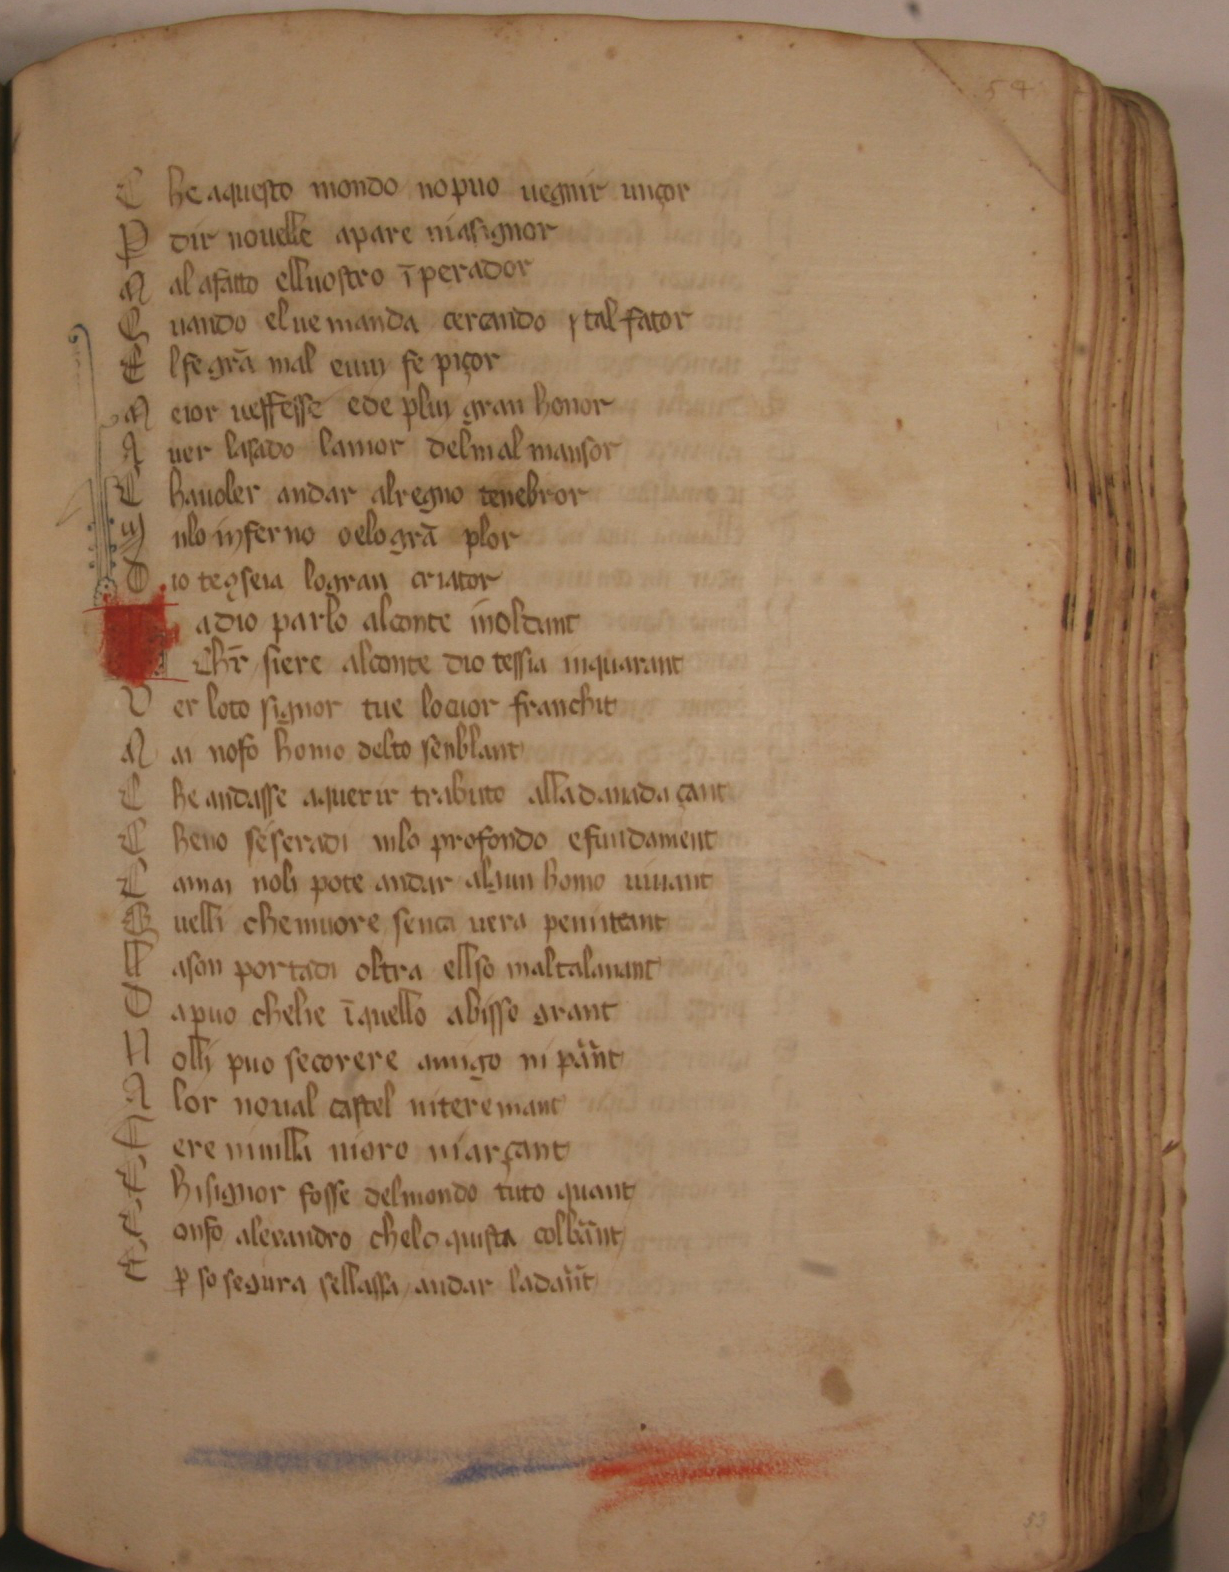 54
C he aquesto mondo no puo uegnir unçor
P dir nouelle apare ni a signor
M al a fatto ell uostro ī perador
Q uando el ue manda cercando ytal fator
E l fe grā mal euuy fe piçor
M eior ue ffesse e de pluy gran honor
A uer lasado lamor del mal mansor
C ha uoler andar al regno tenebror
in lo inferno o e lo grā plor
D io te seia lo gran criator
a dio parlo al conte
siere al conte dio te ssia in quarant
P er loto signor tue lo cuor franchit
M ai no so homo de senblant
C he andasse a querir trabuto alla danada çant
C he no se seradi in lo profondo e fundament
C a mai no li pote andar algun homo uiuant
Q uelli che muore sença uera penitcant
ll a son portadi oltra ell so maltalanant
D a puo che li e ī quello abisso grant
N olli puo secorere amigo ni pār̄nt
A lor no ual castel ni teremant
T ere ni uilla ni oro ni arçant
C hi signor fosse del mondo tuto quant
C on fo alexandro che lo quista
E p so segura se llassa andar la
53